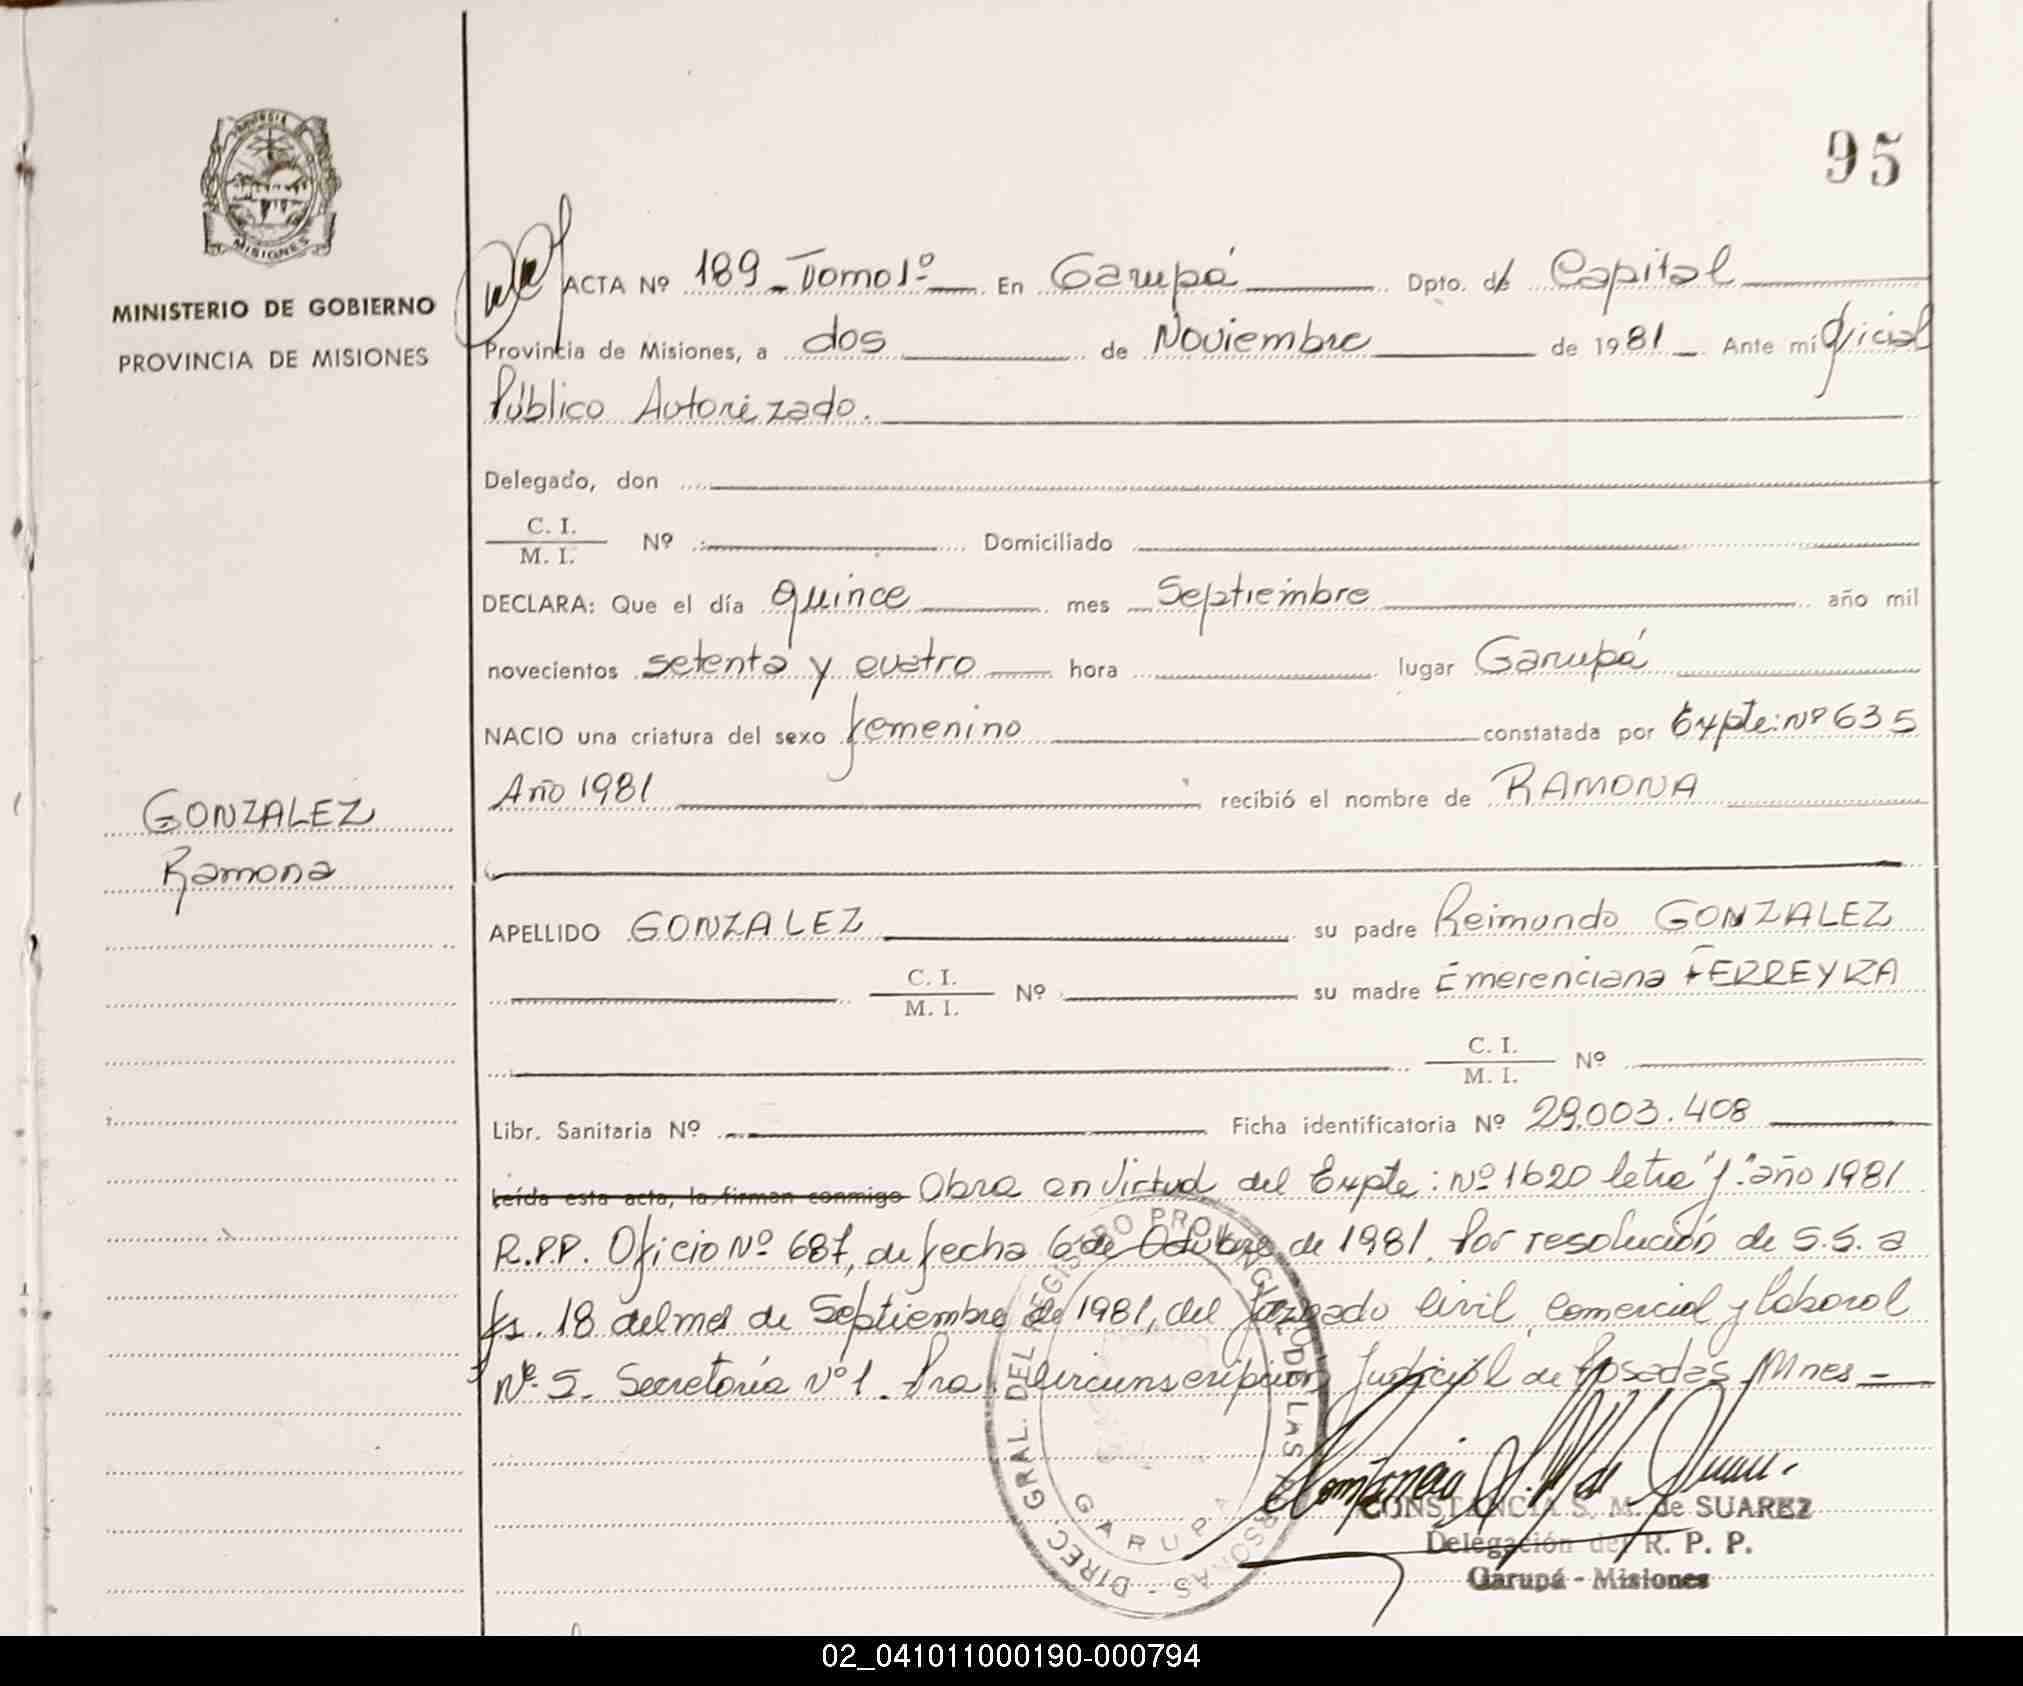 95
MISIONES
MINISTERIO DE GOBIERNO
PROVINCIA DE MISIONES
GONZALEZ
Ramona
ACTA Nº 189 - Tomo 1º En Garupá Dpto. de Capital
Provincia de Misiones, a dos de Noviembre de 1981 Ante mí Oficial
Público Autorizado.
Delegado, don
C. I.
M. I. Nº Domiciliado
DECLARA: Que el día quince mes Septiembre año mil
novecientos setenta y cuatro hora lugar Garupá
NACIO una criatura del sexo femenino constatada por Expte: Nº 635
Año 1981 recibió el nombre de RAMONA
APELLIDO GONZALEZ su padre Reimundo GONZALEZ
C. I.
M. I. Nº su madre Emerenciana FERREYRA
C. I.
M. I. Nº
Libr. Sanitaria Nº Ficha identificatoria Nº 29.003.408
Leída esta acta, la firman conmigo Obra en Virtud del Expte: Nº 1620 letra "J" año 1981
R.P.P. Oficio Nº 687, de fecha 6 de Octubre de 1981. Por resolución de S.S. a
fs. 18 del mes de Septiembre de 1981, del Juzgado Civil, Comercial y Laboral
Nº 5 - Secretoría Nº 1. Pra. Circunscripción Judicial de Posadas Mnes -
DIREC. GRAL. DEL REGISTRO PROVINCIAL DE LAS PERSONAS -
GARUPA
CONSTANCIA S. M. de SUAREZ
Delegación del R. P. P.
Garupá - Misiones
02_041011000190-000794